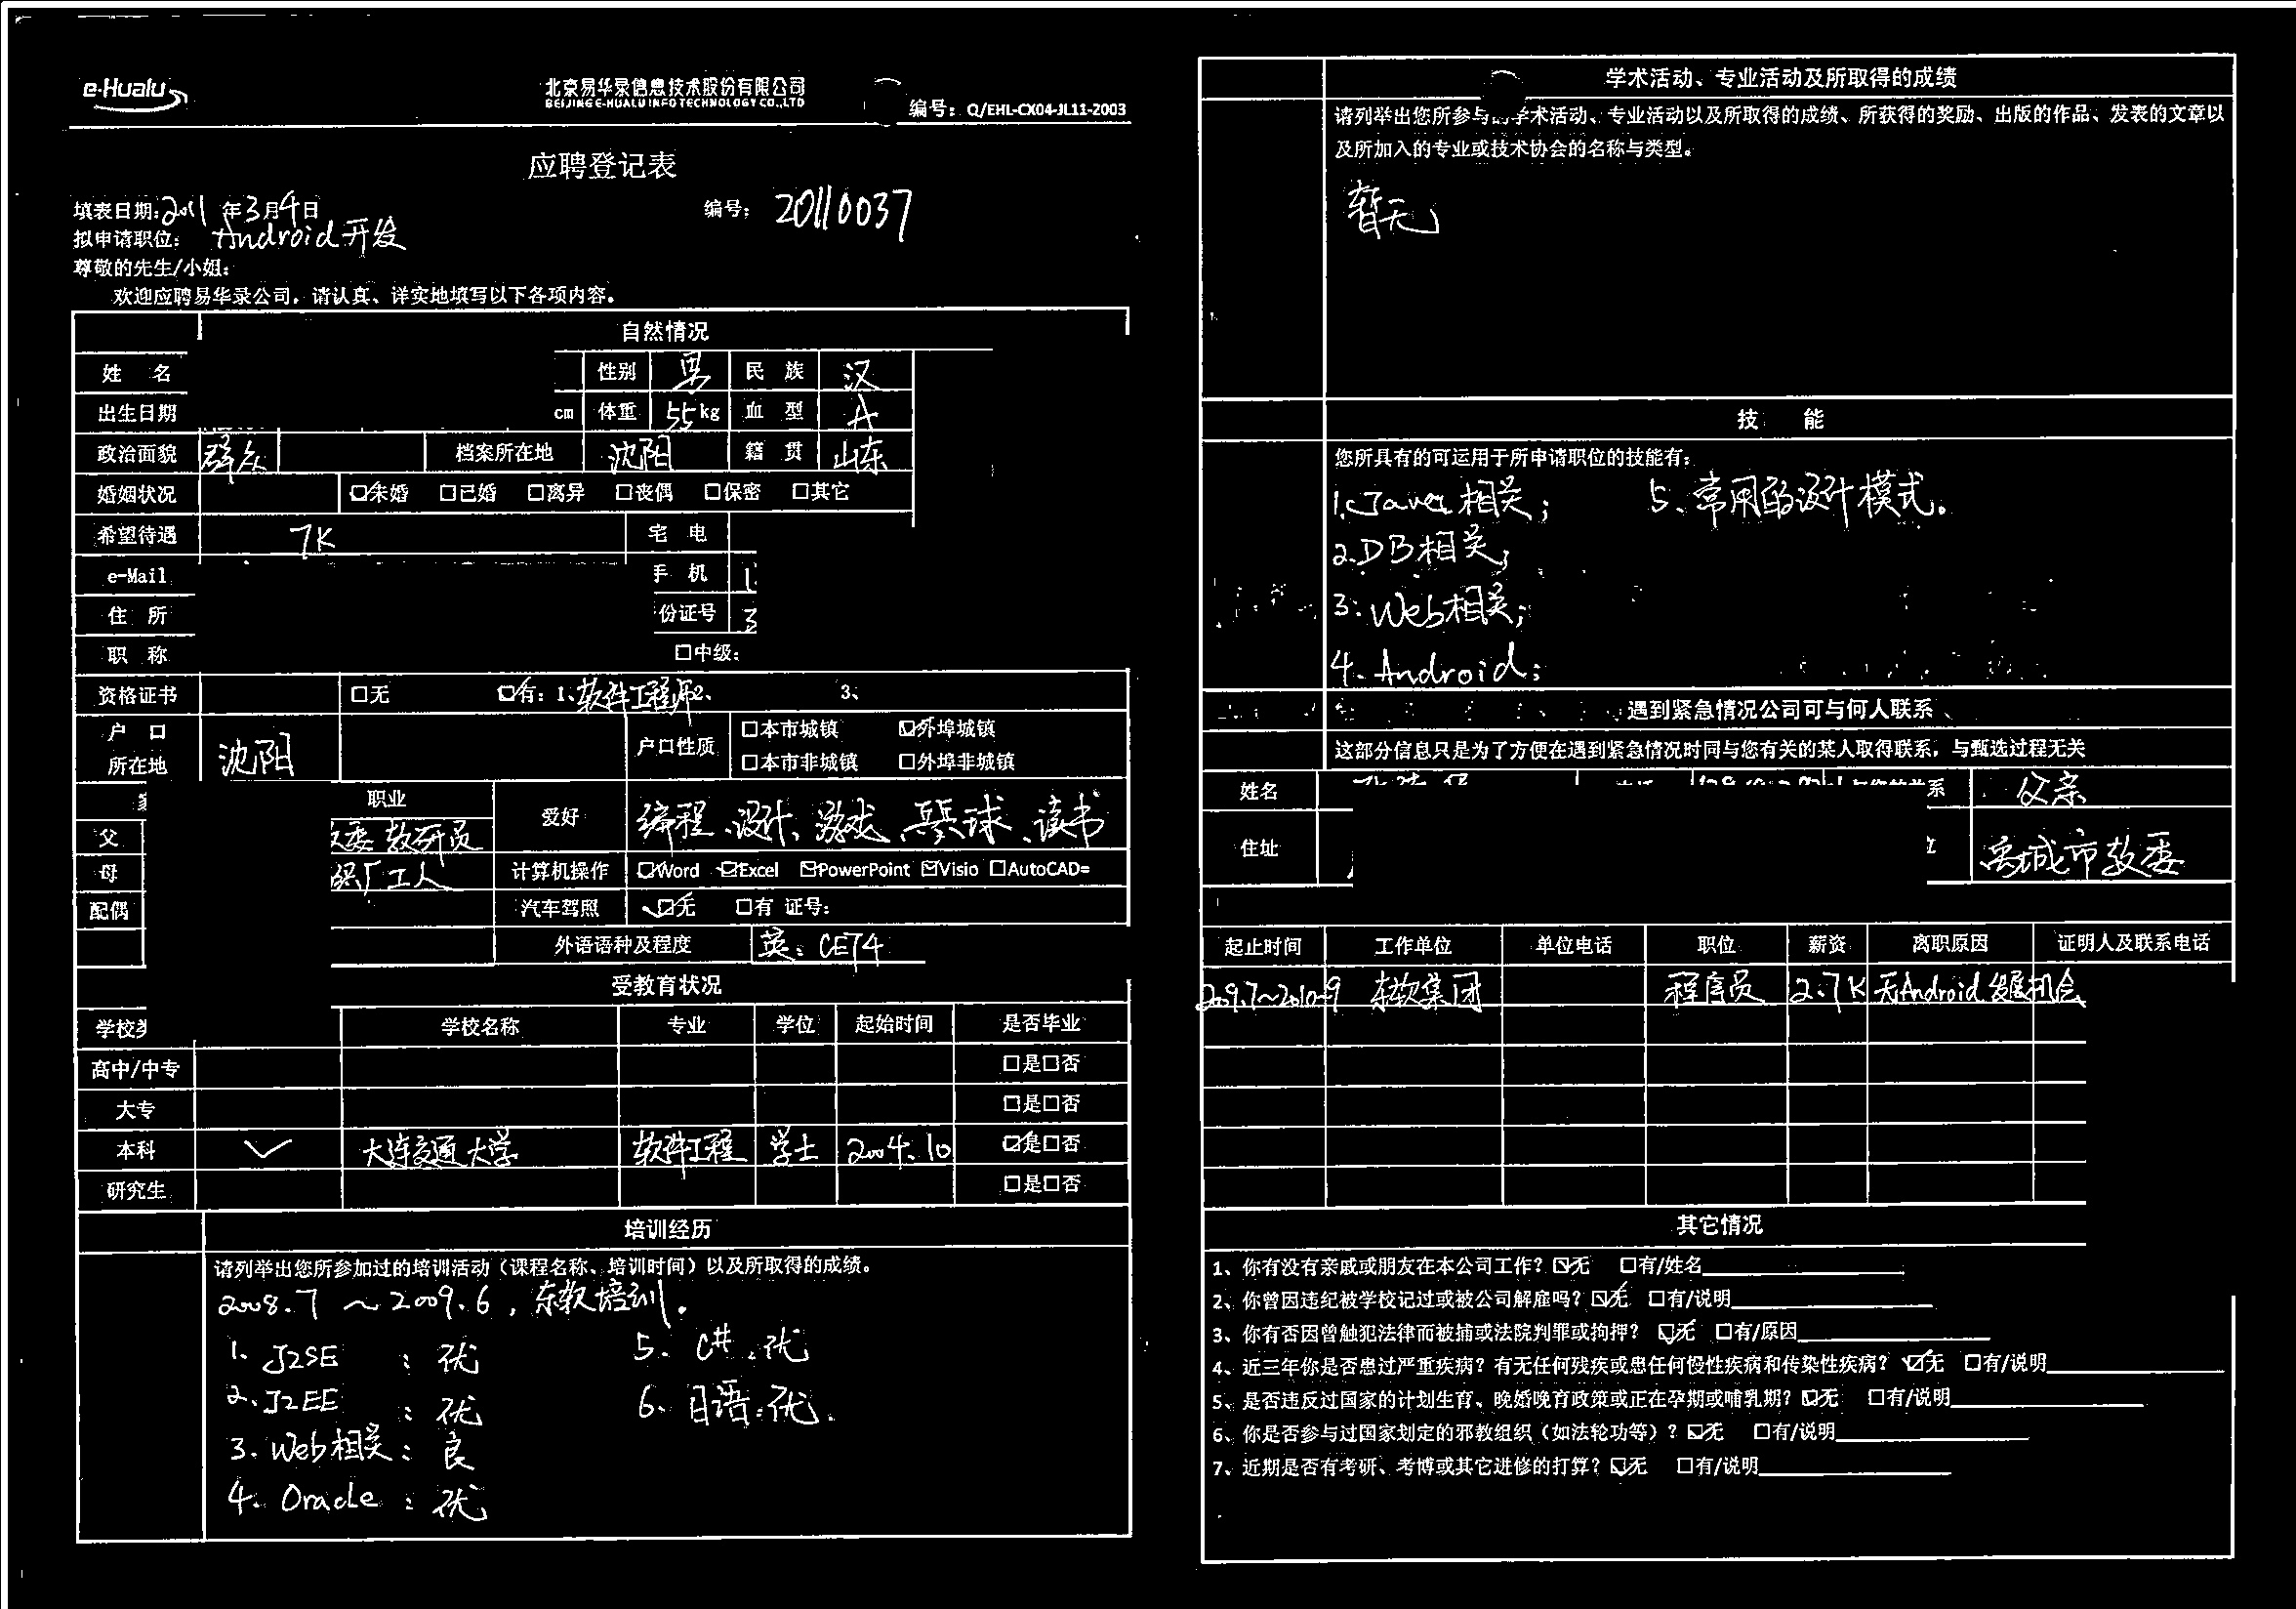 e-Hualu
北京易华录信息技术股份有限公司
BEIJING E-HUALU INFO TECHNOLOGY CO.,LTD
编号：Q/EHL-CX04-JL11-2003
应聘登记表
填表日期：2011年3月4日
编号：20110037
拟申请职位：Android开发
尊敬的先生/小姐：
欢迎应聘易华录公司，请认真、详实地填写以下各项内容。
自然情况
姓 名 性别 男 民 族 汉
出生日期 cm 体重 55kg 血 型 A
政治面貌 群众 档案所在地 沈阳 籍 贯 山东
婚姻状况 □未婚 □已婚 □离异 □丧偶 □保密 □其它
希望待遇 7K 宅 电
e-Mail 手 机 1
住 所 份证号 3
职 称 □中级：
资格证书 □无 ☑有：1、软件工程师 2、 3、
户 口 所在地 沈阳 户口性质 □本市城镇 ☑外埠城镇
□本市非城镇 □外埠非城镇
职业 爱好 编程、设计、游戏、乒乓球、读书
父 教研员
母 工人 计算机操作 ☑Word ☑Excel ☑PowerPoint ☑Visio □AutoCAD=
配偶 汽车驾照 ☑无 □有 证号：
外语语种及程度 英：CET4
受教育状况
学校 学校名称 专业 学位 起始时间 是否毕业
高中/中专 □是□否
大专 □是□否
本科 ✓ 大连交通大学 软件工程 学士 2004.10 ☑是□否
研究生 □是□否
培训经历
请列举出您所参加过的培训活动（课程名称、培训时间）以及所取得的成绩。
2008.7～2009.6，东软培训。
1. J2SE：优 5. C#：优
2. J2EE：优 6. 日语：优.
3. Web相关：良
4. Oracle：优
学术活动、专业活动及所取得的成绩
请列举出您所参与的学术活动、专业活动以及所取得的成绩、所获得的奖励、出版的作品、发表的文章以
及所加入的专业或技术协会的名称与类型。
暂无
技 能
您所具有的可运用于所申请职位的技能有：
1. Java相关； 5、常用的设计模式。
2. DB相关；
3. Web相关；
4. Android；
遇到紧急情况公司可与何人联系
这部分信息只是为了方便在遇到紧急情况时同与您有关的某人取得联系，与甄选过程无关
姓名 系 父亲
住址 禹城市教委
起止时间 工作单位 单位电话 职位 薪资 离职原因 证明人及联系电话
2009.7～2010.9 东软集团 程序员 2.7K 无Android发展机会
其它情况
1、你有没有亲戚或朋友在本公司工作？☑无 □有/姓名
2、你曾因违纪被学校记过或被公司解雇吗？☑无 □有/说明
3、你有否因曾触犯法律而被捕或法院判罪或拘押？ ☑无 □有/原因
4、近三年你是否患过严重疾病？有无任何残疾或患任何慢性疾病和传染性疾病？☑无 □有/说明
5、是否违反过国家的计划生育、晚婚晚育政策或正在孕期或哺乳期？☑无 □有/说明
6、你是否参与过国家划定的邪教组织（如法轮功等）？☑无 □有/说明
7、近期是否有考研、考博或其它进修的打算？☑无 □有/说明